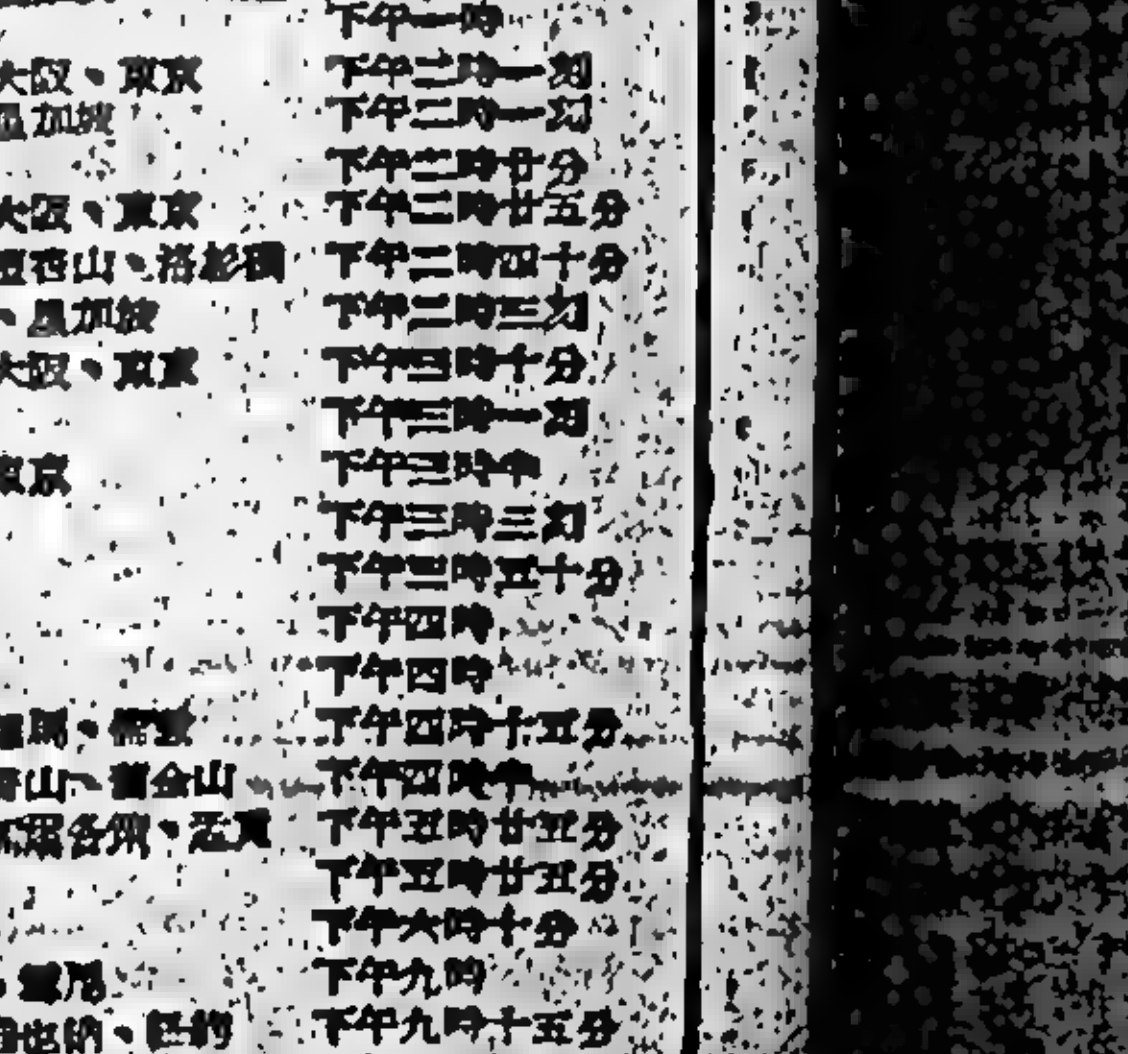 下午一時
大阪、東京 下午二時一刻
加坡 下午二時一刻
下午二時廿分
大阪、東京 下午二時廿五分
香山、洛杉磯 下午二時四十分
、星加坡 下午二時三刻
大阪、東京 下午四時十分
下午三時一刻
東京 下午三時半
下午三時三刻
下午三時五十分
下午四時
下午四時
下午四時十五分
香山、舊金山 下午四時半
各州、孟買 下午五時廿五分
下午五時廿五分
下午六時十分
下午九時
、紐約 下午九時十五分